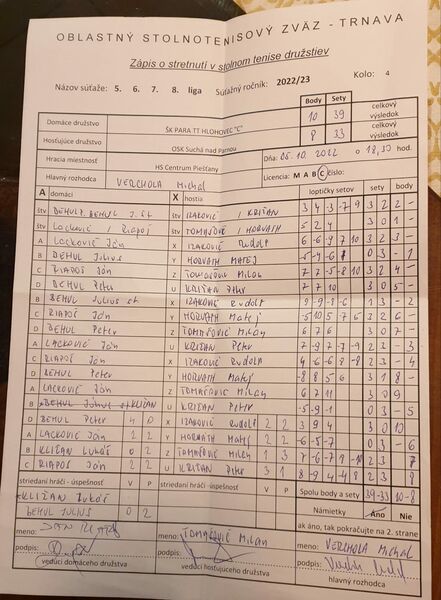 OBLASTNÝ STOLNOTENISOVÝ ZVÄZ - TRNAVA
Zápis o stretnutí v stolnom tenise družstiev
Názov súťaže: 5. 6. 7. 8. liga Súťažný ročník: 2022/23 Kolo: 4
Body Sety
Domáce družstvo ŠK PARA TT HLOHOVEC "C" 10 39 celkový výsledok
Hosťujúce družstvo OŠK Suchá nad Parnou 8 33 celkový výsledok
Hracia miestnosť HS Centrum Piešťany Dňa: 05.10.2022 o 18,30 hod.
Hlavný rozhodca VERCHOLA Michal Licencia: M A B C číslo:
A domáci X hostia loptičky setov sety body
štv BEHUL P. BEHUL J. st štv IZAKOVIČ / KRIŽAN 3 4 -3 -7 9 3 2 -
štv Lackovič / Riapoš štv TOMAŠOVIČ / 5 2 4 3 0 1 -
A LACKOVIČ Ján X IZAKOVIČ Rudolf 6 -6 -9 7 10 3 2 3 -
B BEHUL Július Y HORVATH MATEJ 0 3 - 1
C RIAPOŠ Ján Z Tomašovič Milan 7 7 -5 -8 10 3 2 4 -
D BEHUL Peter U KRIŽAN Peter 7 7 10 3 0 5 -
B BEHUL Július st. X IZAKOVIČ Rudolf 1 3 - 2
C RIAPOŠ Ján Y HORVATH Matej -5 10 5 -7 6 3 2 6 -
D BEHUL Peter Z TOMAŠOVIČ Milan 6 7 6 3 0 7 -
A LACKOVIČ Ján U KRIŽAN Peter 7 -9 7 -7 -9 2 3 - 3
C RIAPOŠ Ján X IZAKOVIČ Rudolf 4 -6 6 -8 -8 2 3 - 4
D BEHUL Peter Y HORVATH Matej -8 8 5 6 3 1 8 -
A LACKOVIČ Ján Z TOMAŠOVIČ Milan 6 7 11 3 0 9
B BEHUL Július st KLIŽAN U KRIŽAN Peter -5 -9 -1 0 3 - 5
D BEHUL Peter 4 0 X IZAKOVIČ Rudolf 2 2 3 9 4 3 0 10
A LACKOVIČ Ján 2 2 Y HORVATH Matej 2 2 -6 -5 -7 0 3 - 6
B KLIŽAN Lukáš 0 2 Z TOMAŠOVIČ Milan 1 3 2 3 7
C RIAPOŠ Ján 2 2 U KRIŽAN Peter 3 1 8 -9 4 -4 8 2 3 8
striedaní hráči - úspešnosť V P striedaní hráči - úspešnosť V P Spolu body a sety 39-33 10-8
KLIŽAN Lukáš Námietky Áno Nie
BEHUL JULIUS 0 2 ak áno, tak pokračujte na 2. strane
meno: meno: TOMAŠOVIČ Milan meno: VERCHOLA Michal
podpis: podpis: podpis:
vedúci domáceho družstva vedúci hosťujúceho družstva hlavný rozhodca